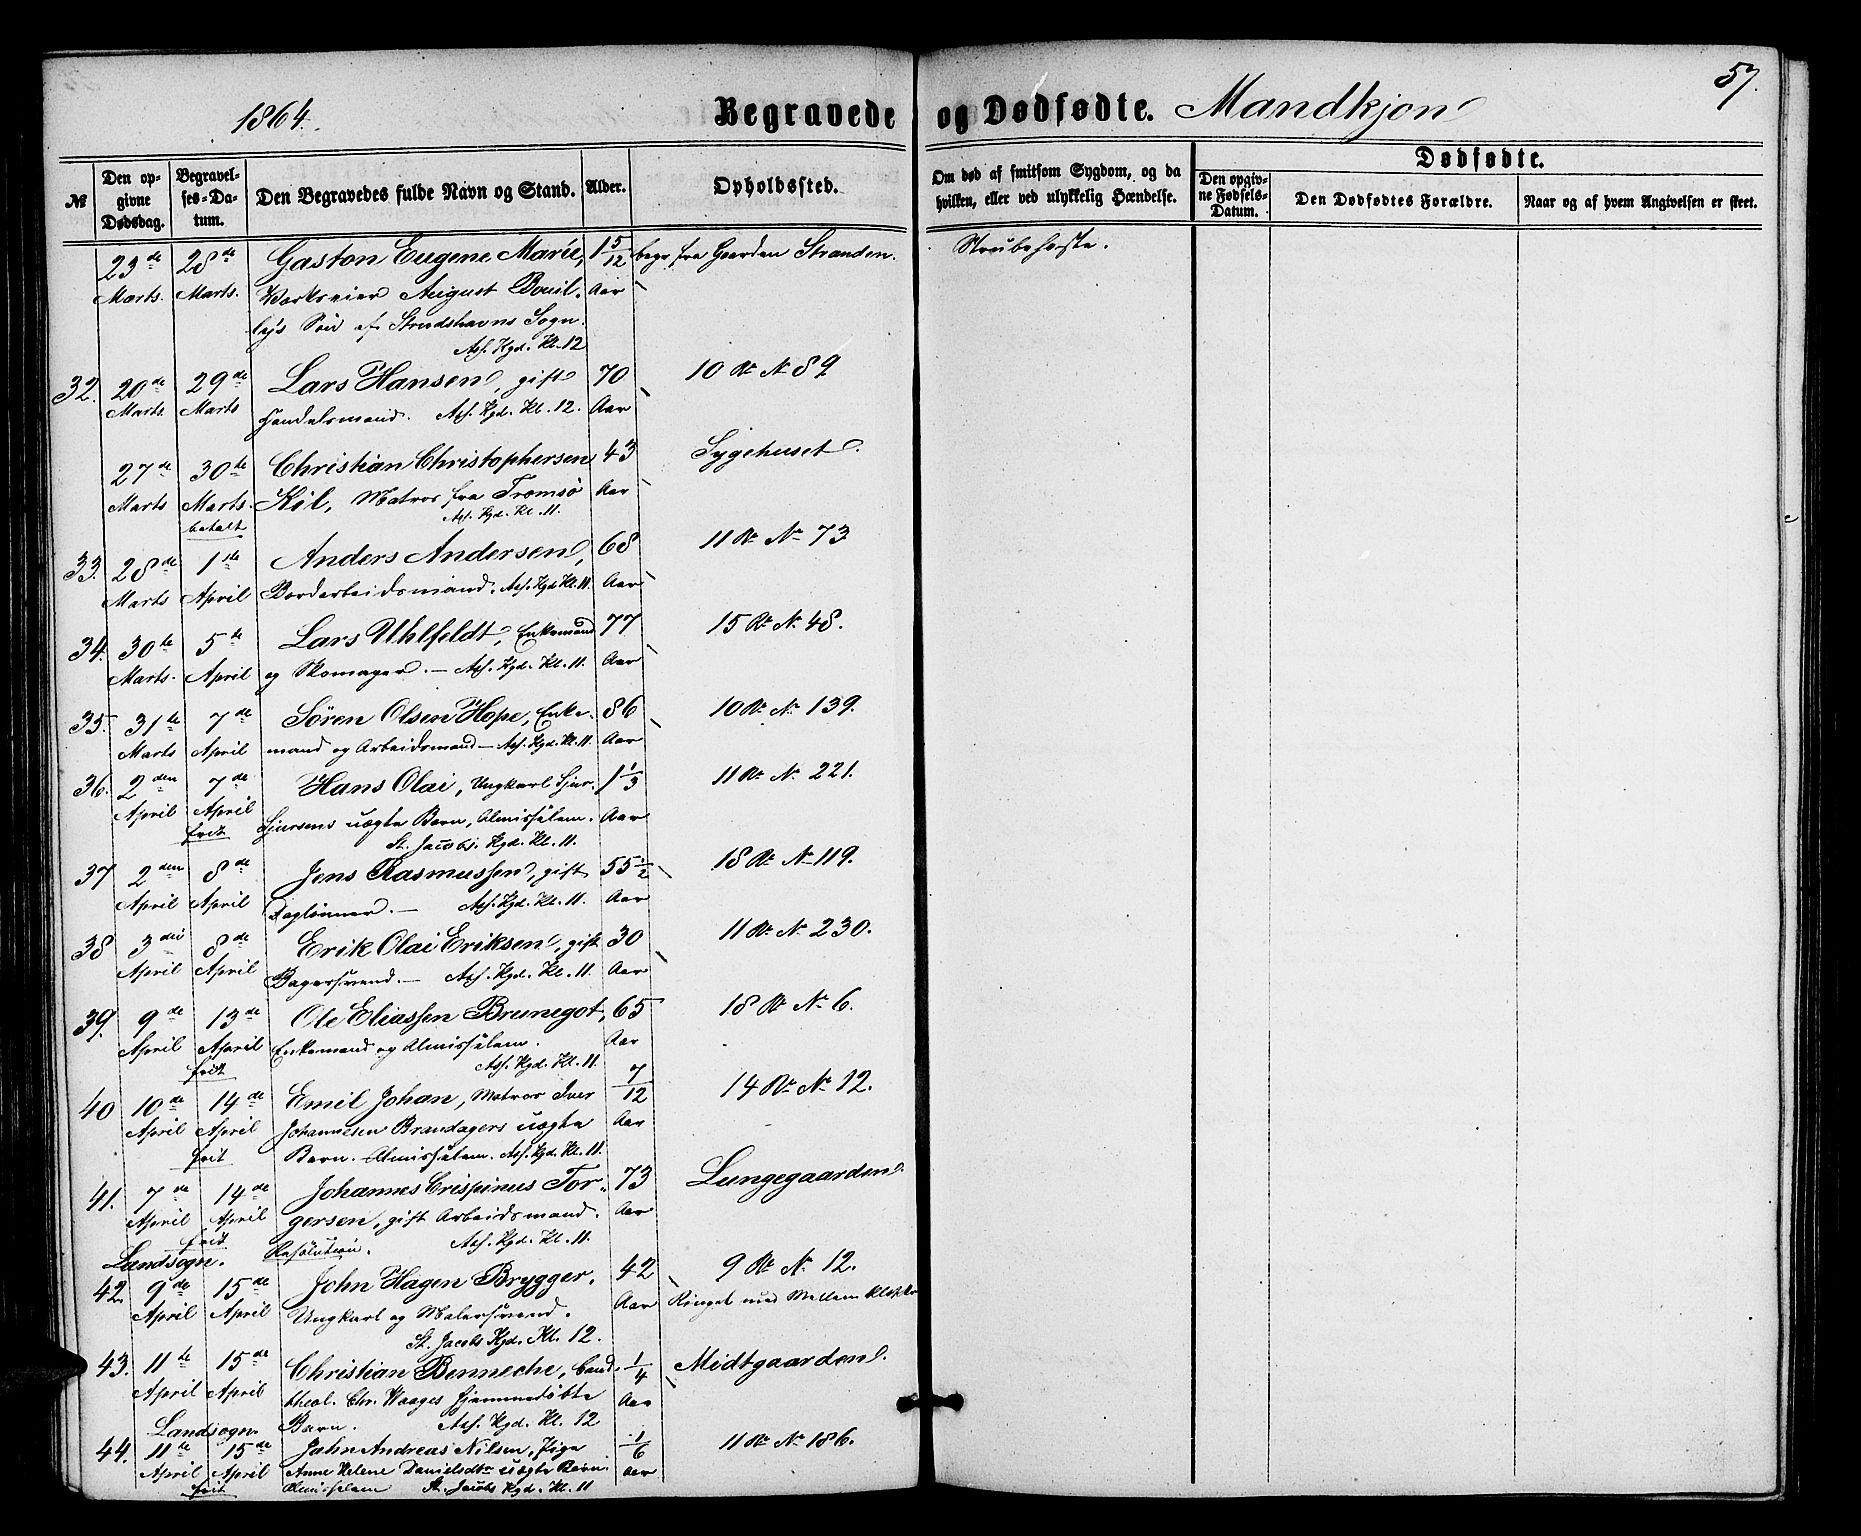 57.
1864. Begravede og Dødfødte. Mandkjøn
№ Den opgivne Dødsdag. Begravelses-Datum. Den Begravedes fulde Navn og Stand. Alder. Opholdssted. Om død af smitsom Sygdom, og da hvilken, eller ved ulykkelig Hændelse. Dødfødte. Den opgivne Fødsels-Datum. Den Dødfødtes Forældre. Naar og af hvem Angivelsen er skeet.
23de 28de Gaston Eugene Marie, 1 5/12 begr. fra Gaarden Stranden. Strubehoste.
Marts. Marts. Værkseier August Bouil- Aar
lys Søn af Strudshavns Sogn.
Ass. Kgd. Kl. 12
32. 20de 29de Lars Hansen, gift 70 10 R. N. 89
Marts. Marts Handelsmand. Ass. Kgd. Kl. 12. Aar
27de 30te Christian Christophersen 43 Sygehuset.
Marts Marts. Kiil, Matros fra Tromsø Aar
betalt Ass. Kgd. Kl. 11.
33. 28de 1ste Anders Andersen, 68 11 R. N. 73
Marts April Bordarbeidsmand. Ass. Kgd. Kl. 11. Aar
34. 30te 5te Lars Uhlfeldt, Enkemand 77 15 R. N. 48.
Marts. April og Skomager. — Ass. Kgd. Kl. 11. Aar
35. 31te 7de Søren Olsen Hope, Enke- 86 10 R. N. 139.
Marts April mand og Arbeidsmand — Ass. Kgd. Kl. 11. Aar
36. 2den 7de Hans Olai, Ungkarl Sjur 1 1/3 11 R. N. 221.
April April Sjursens uægte Barn, Almisselem. Aar
frit St. Jacobs. Kgd. Kl. 11.
37 2den 8de Jens Rasmussen, gift 55 1/2 18 R. N. 119.
April April Daglønner. — Ass. Kgd. Kl. 11. Aar
38 3die 8de Erik Olai Eriksen, gift 30 11 R. N. 230.
April April Bagersvend. — Ass. Kgd. Kl. 11. Aar
39. 9de 13de Ole Eliassen Brunegot, 65 18 R. N. 6.
April April Enkemand og Almisselem. Aar
frit Ass. Kgd. Kl. 11.
40 10de 14de Emil Johan, Matros Iver 7/12 14 R. N. 12.
April April Johannesen Brandagers uægte Aar
frit Barn. Almisselem. Ass. Kgd. Kl. 11.
41. 7de 14de Johannes Crispinus Tor- 73 Lungegaarden.
April April gersen, gift Arbeidsmand. Aar
frit Resolution. Ass. Kgd. Kl. 11.
Landsogn.
42. 9de 15de John Hagen Brygger. 42 9 R. N. 12.
April April Ungkarl og Malersvend. Aar Ringet med Mellem Klokke
St. Jacobs Kgd. Kl. 12.
43. 11te 15de Christian Benneche, Cand. 1/4 Midtgaarden.
April April theol. Chr. Waages hjemmedøbte Aar
Landsogn. Barn. Ass. Kgd. Kl. 12
44. 11te 15de Jahn Andreas Nilsen, Pige 1/6 11 R. N. 186.
April April Anne Helene Danielsdtr uægte Barn. Aar
frit Almisselem St. Jacobs Kgd. Kl. 11